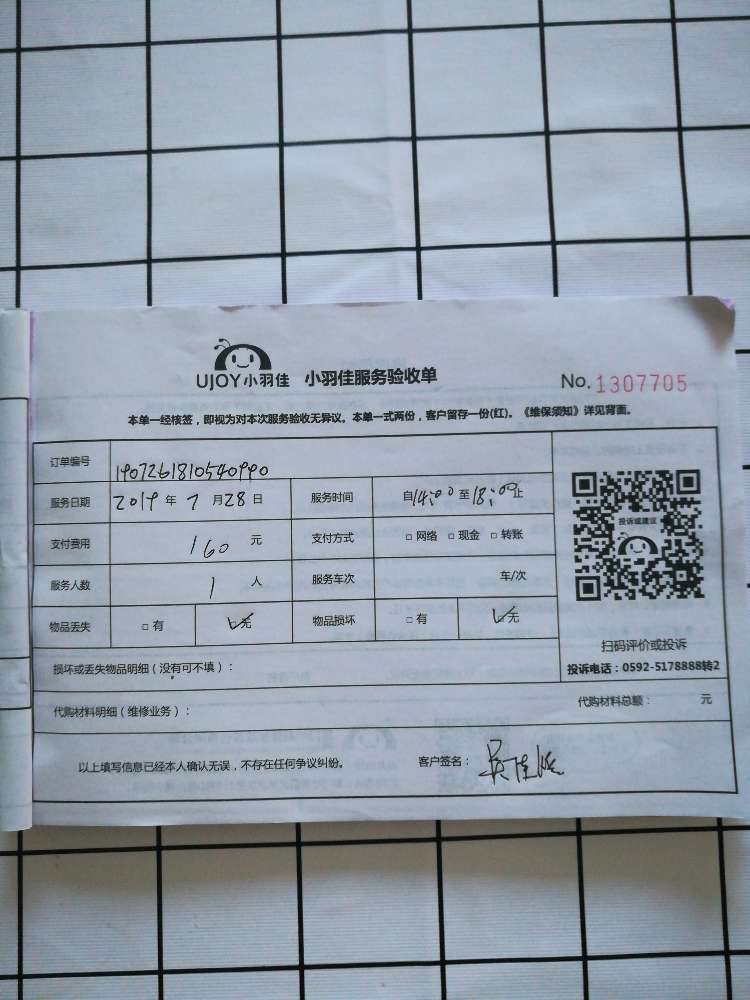 UJOY小羽佳 小羽佳服务验收单 No.1307705
本单一经核签，即视为对本次服务验收无异议。本单一式两份，客户留存一份(红)。《维保须知》详见背面。
订单编号 1907261810540990
服务日期 2019 年 7 月 28 日 服务时间 自14:00至18:00止
投诉或建议
支付费用 160 元 支付方式 □ 网络 □ 现金 □ 转账
服务人数 1 人 服务车次 车/次
物品丢失 □ 有 ☑ 无 物品损坏 □ 有 ☑ 无
扫码评价或投诉
损坏或丢失物品明细（没有可不填）：
投诉电话：0592-5178888转2
代购材料明细（维修业务）： 代购材料总额： 元
以上填写信息已经本人确认无误，不存在任何争议纠纷。 客户签名：